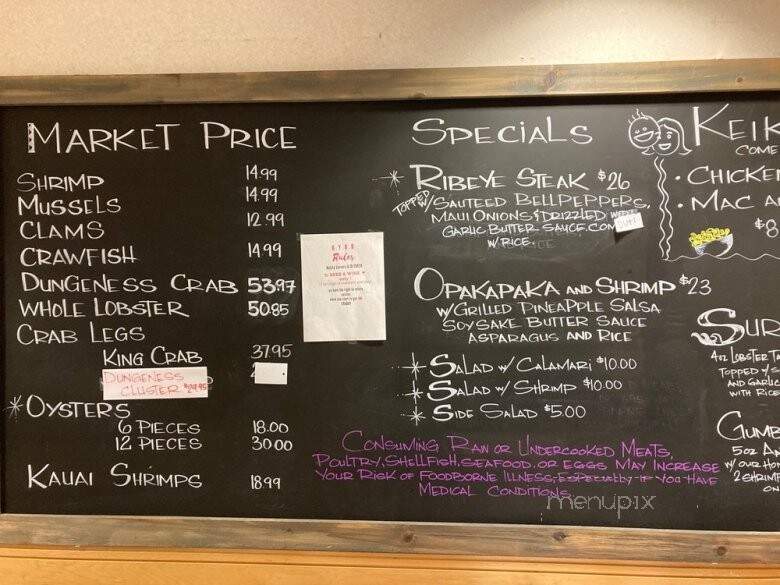 MARKET PRICE
SHRIMP 14.99
MUSSELS 14.99
CLAMS 12.99
CRAWFISH 14.99
DUNGENESS CRAB 53.97
WHOLE LOBSTER 50.85
CRAB LEGS
KING CRAB 37.95
DUNGENESS
CLUSTER $24.95
*OYSTERS
6 PIECES 18.00
12 PIECES 30.00
KAUAI SHRIMPS 18.99
BYOB
Rules
SPECIALS
* RIBEYE STEAK $26
TOPPED W/SAUTEED BELLPEPPERS,
MAUI ONIONS & DRIZZLED
GARLIC BUTTER SAUCE.
W/RICE
OPAKAPAKA AND SHRIMP $23
W/GRILLED PINEAPPLE SALSA
SOYSAKE BUTTER SAUCE
ASPARAGUS AND RICE
* SALAD W/ CALAMARI $10.00
* SALAD W/ SHRIMP $10.00
* SIDE SALAD $5.00
CONSUMING RAW OR UNDERCOOKED MEATS,
POULTRY, SHELLFISH, SEAFOOD, OR EGGS MAY INCREASE
YOUR RISK OF FOODBORNE ILLNESS, ESPECIALLY IF YOU HAVE
MEDICAL CONDITIONS
KEIK
COME
• CHICKEN
• MAC A
$8
SUR
4OZ LOBSTER TA
TOPPED W/S
AND GARLIC
WITH RICE
GUMB
5OZ AN
W/OUR HO
2 SHRIMP
ON
menupix